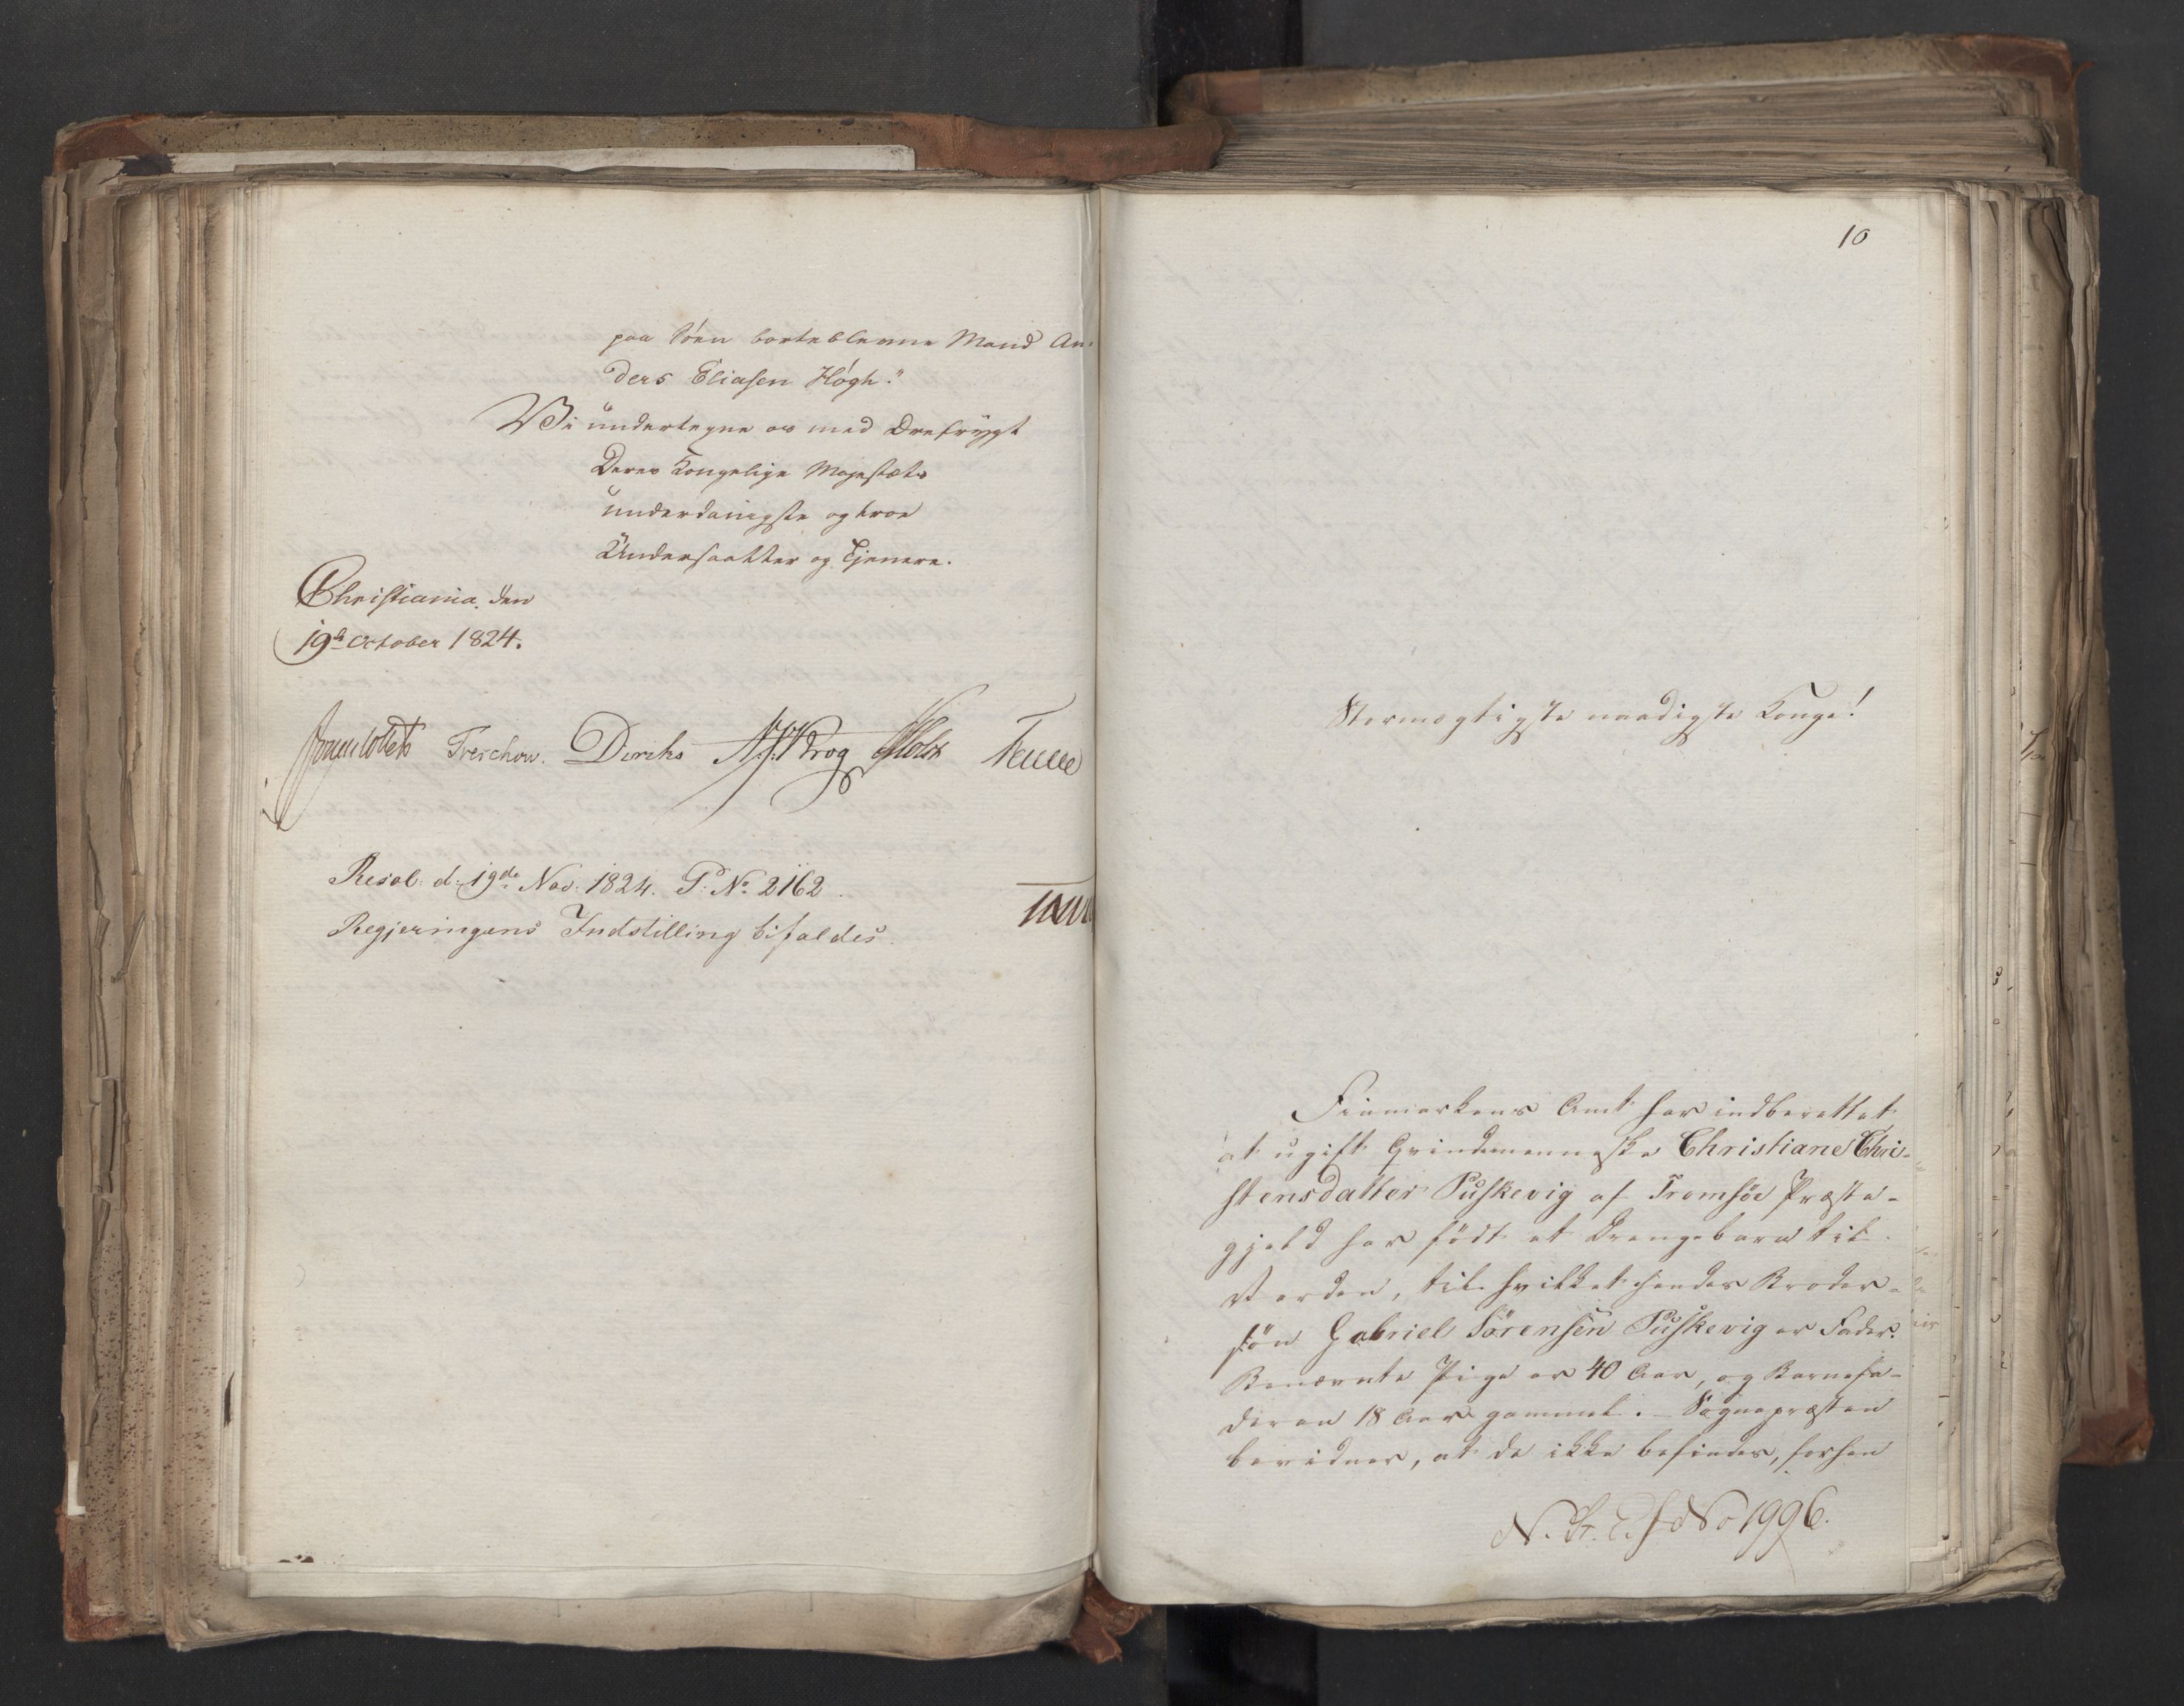 paa Søen borteblevne Mand An-
ders Eliasen Høgh."
Vi undertegne os med Ærefrygt
Deres Kongelige Majestæts
underdanigste og troe
Undersaatter og Tjenere.
Christiania, den
19de October 1824.
Treschow. Diriks Krog Holst
Resol: d: 19de Nov: 1824. P: No 2162.
Regjeringens Indstilling bifaldes.
10
Stormægtigste naadigste Konge!
Finmarkens Amt har indberettet
at ugift Qvindemenneske Christiane Chri-
stensdatter Puskevig af Tromsöe Præste-
gjeld har födt et Drengebarn til
Verden, til hvilket hendes Broder-
sön Gabriel Sörensen Puskevig er Fader.
Benævnte Pige er 40 Aar, og Barnefa-
deren 18 Aar gammel. - Sognepræsten
bevidner, at de ikke befindes, forhen
No 1996.